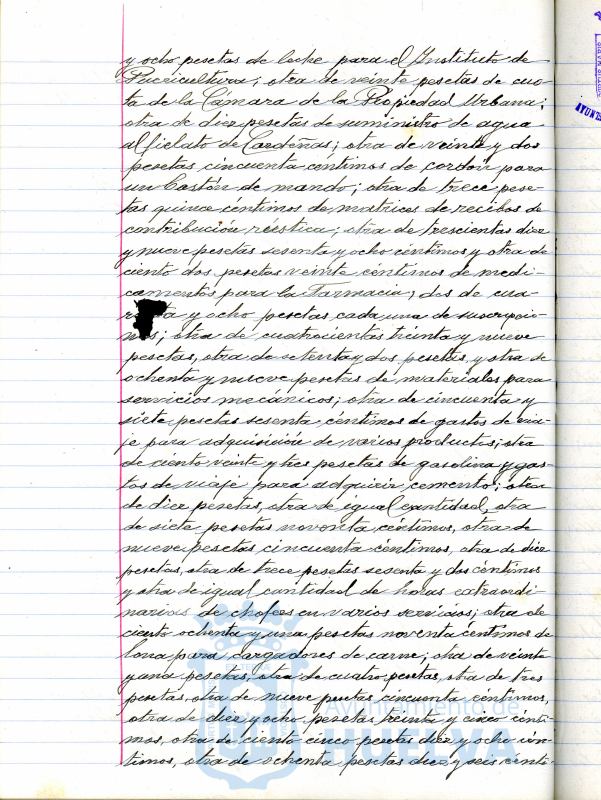 y ocho pesetas de leche para el Instituto de
Puericultura; otra de veinte pesetas de cuo-
ta de la Cámara de la Propiedad Urbana;
otra de diez pesetas de suministro de agua
al fielato de Cardeñas; otra de veinte y dos
pesetas cincuenta céntimos de cordón para
un bastón de mando; otra de trece pese-
tas quince céntimos de matrices de recibos de
contribución rústica; otra de trescientas diez
y nueve pesetas sesenta y ocho céntimos y otra de
ciento dos pesetas veinte céntimos de medi-
camentos para la Farmacia; dos de cua-
y ocho pesetas cada una de suscripcio-
otra de cuatrocientas treinta y nueve
pesetas, otra de setenta y dos pesetas, y otra de
ochenta y nueve pesetas de materiales para
servicios mecánicos; otra de cincuenta y
siete pesetas sesenta céntimos de gastos de via-
je para adquisición de varios productos; otra
de ciento veinte y tres pesetas de gasolina y gas-
tos de viaje para adquirir cemento; otra
de diez pesetas, otra de igual cantidad, otra
de siete pesetas noventa céntimos, otra de
nueve pesetas cincuenta céntimos, otra de diez
pesetas, otra de trece pesetas sesenta y dos céntimos
y otra de igual cantidad de horas extraordi-
narias de chofers en varios servicios; otra de
ciento ochenta y una pesetas noventa céntimos de
lona para cargadores de carne; otra de veinte
y una pesetas, otra de cuatro pesetas, otra de tres
pesetas, otra de nueve pesetas cincuenta céntimos,
otra de diez y ocho pesetas treinta y cinco cénti-
mos, otra de ciento cinco pesetas diez y ocho cén-
timos, otra de ochenta pesetas diez y seis cénti-
Ayuntamiento de
HUELVA